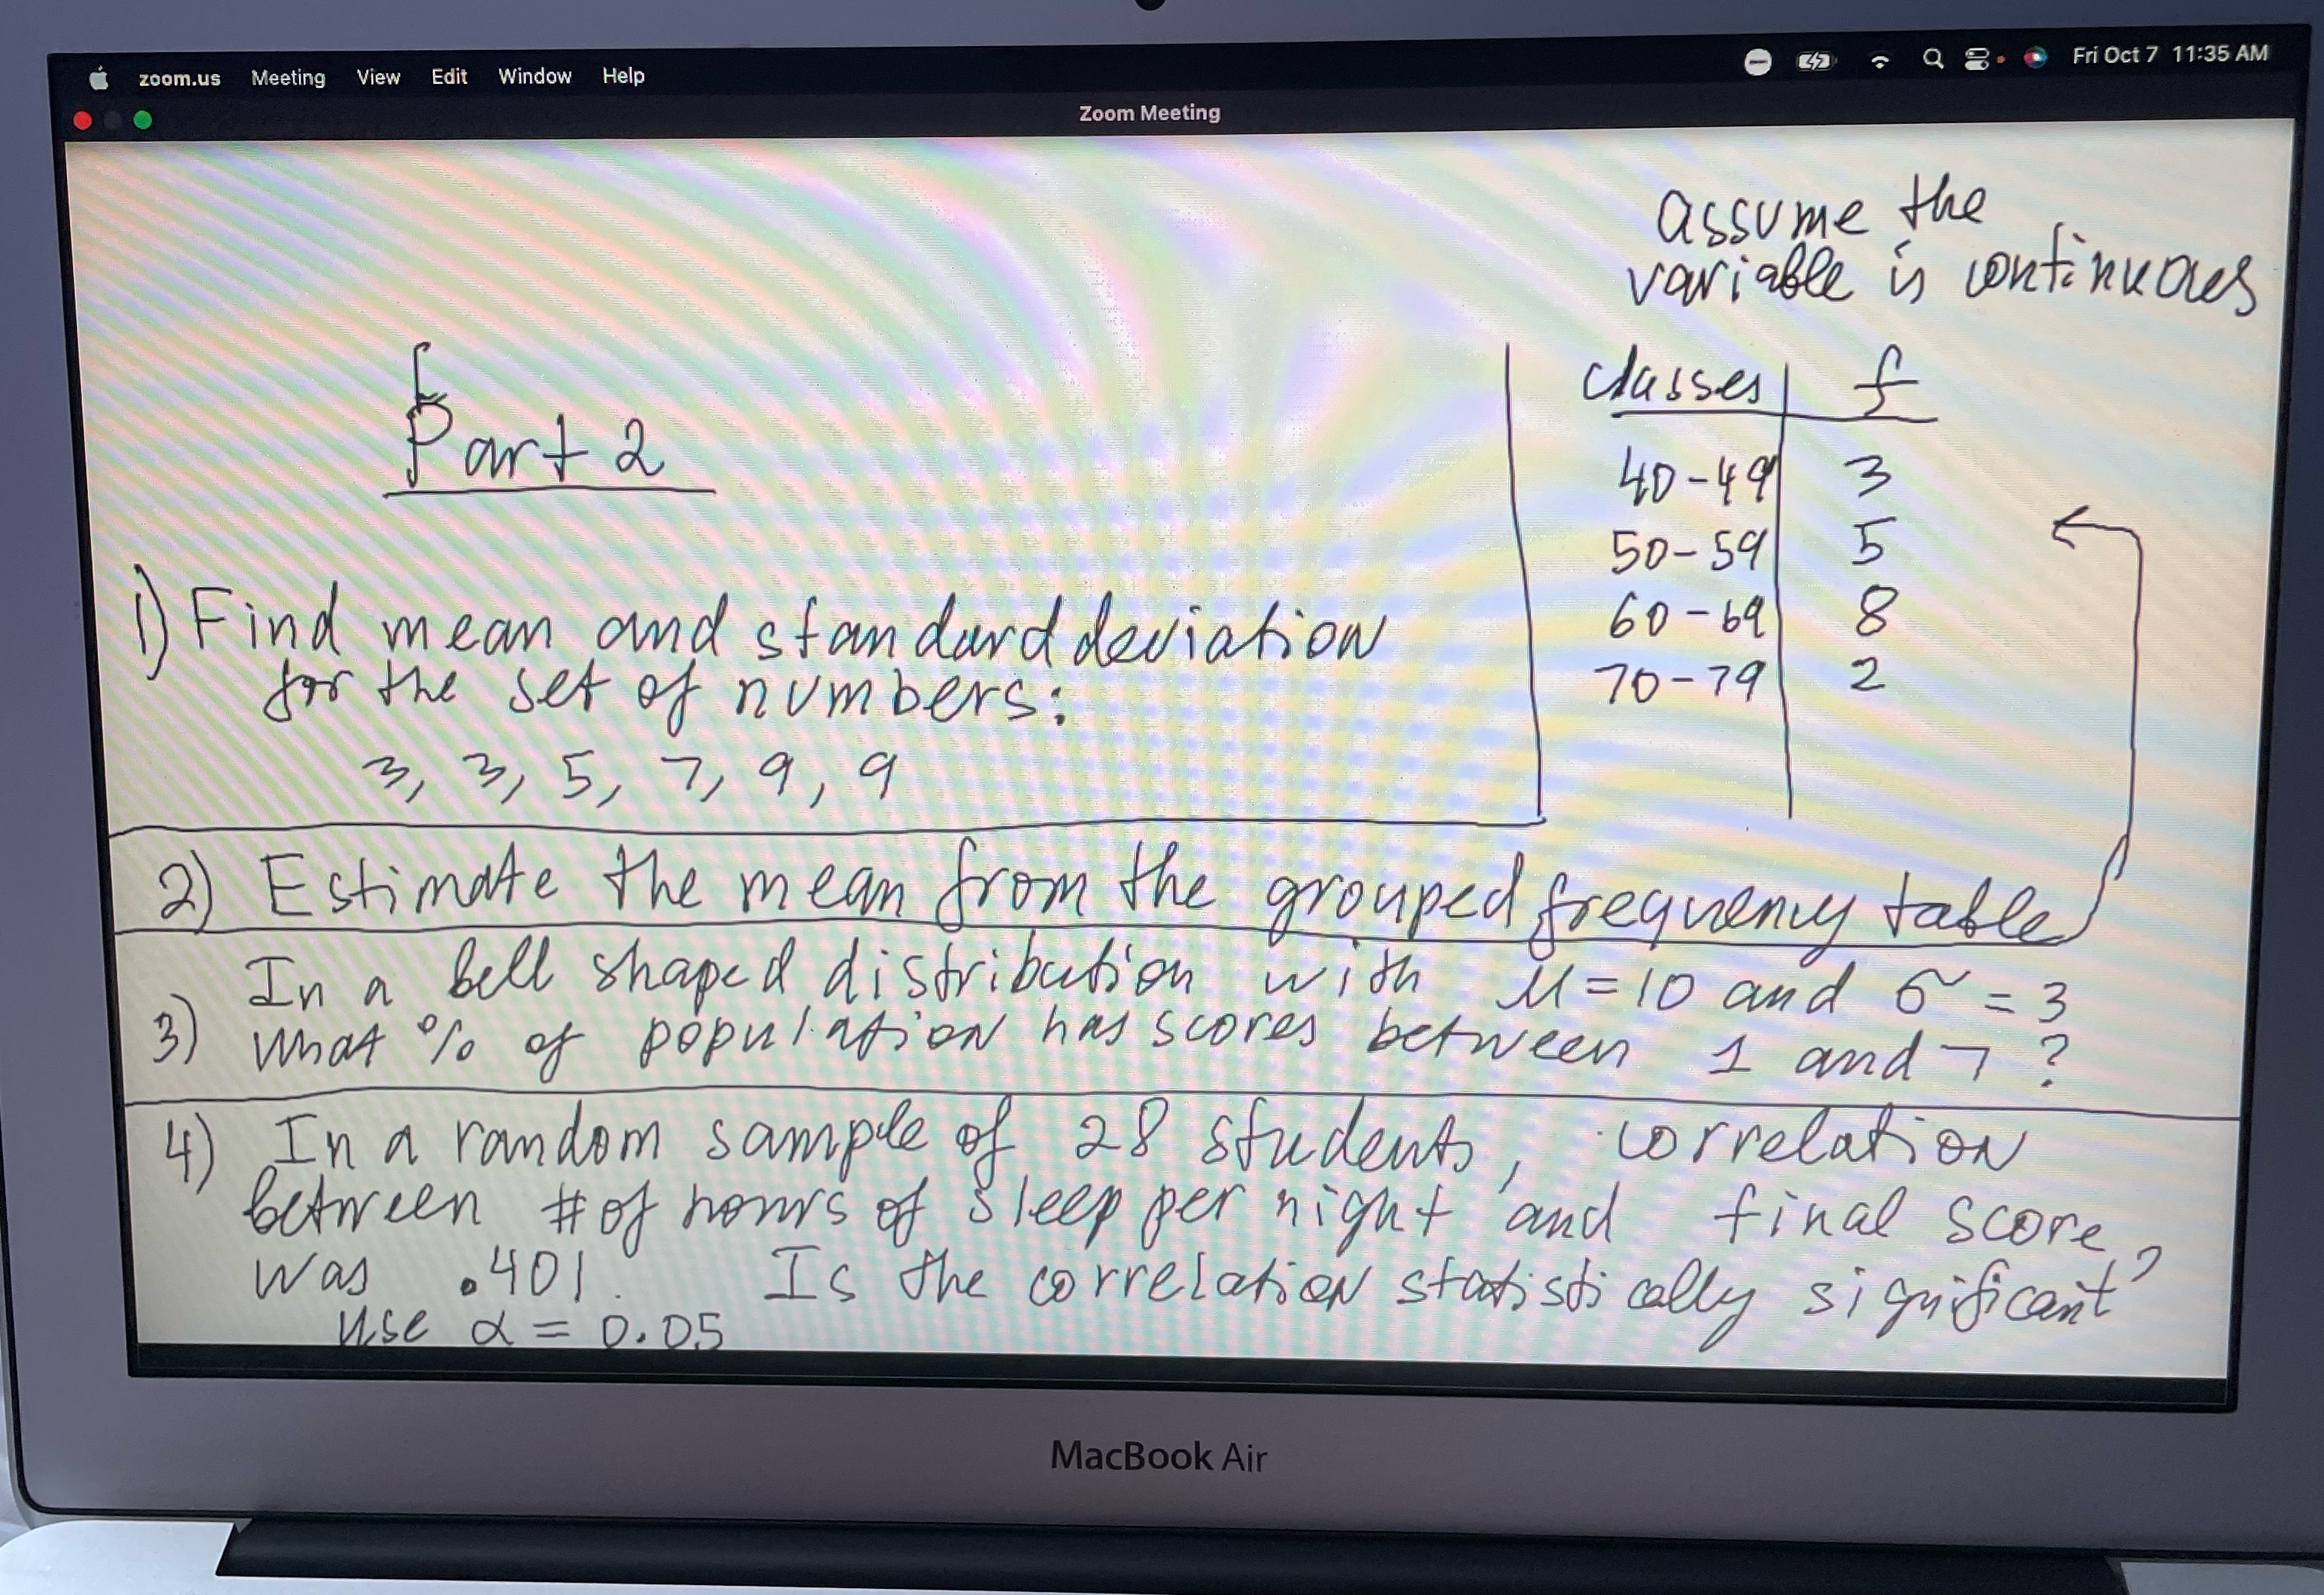 zoom.us Meeting View Edit Window Help Fri Oct 7 11:35 AM
Zoom Meeting
assume the
variable is continuous
Part 2
classes f
40-49 3
50-59 5
60-69 8
70-79 2
1) Find mean and standard deviation
for the set of numbers:
3, 3, 5, 7, 9, 9
2) Estimate the mean from the grouped frequency table
3) In a bell shaped distribution with μ=10 and σ=3
what % of population has scores between 1 and 7 ?
4) In a random sample of 28 students, correlation
between # of hours of sleep per night and final score
was .401. Is the correlation statistically significant?
use α = 0.05
MacBook Air